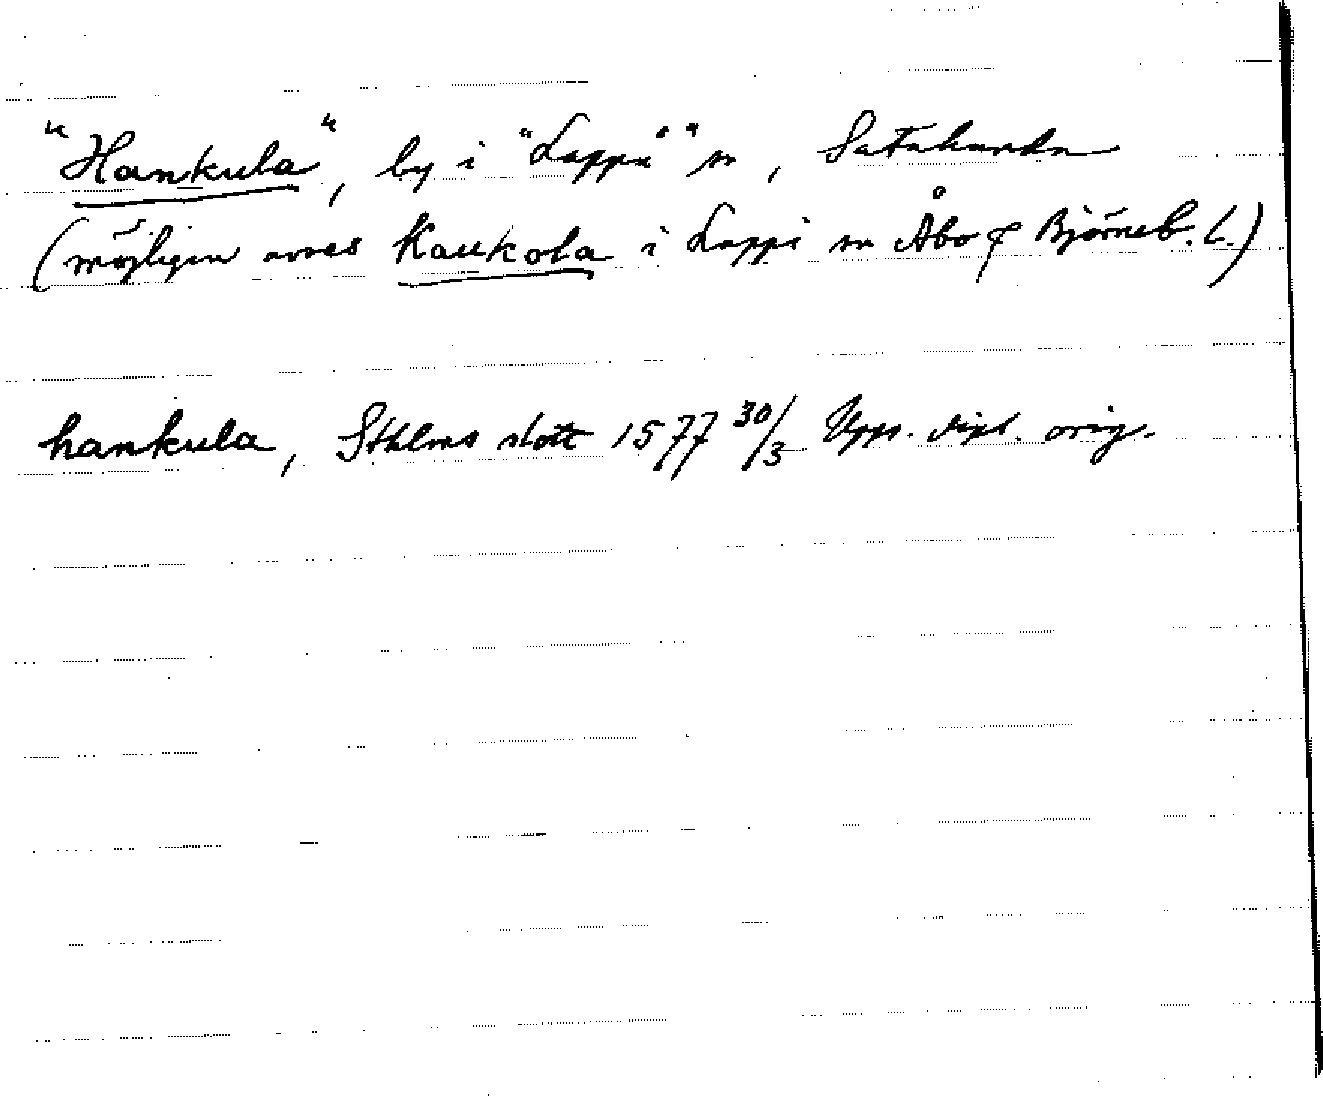 "Hankula", by i "Lappå" sn, Satakunda
(möjligen avses Kaukola i Lappi sn Åbo o Björneb. l.)
hankula, Sthlms slott 1577 30/3 Upps. dipl. orig.